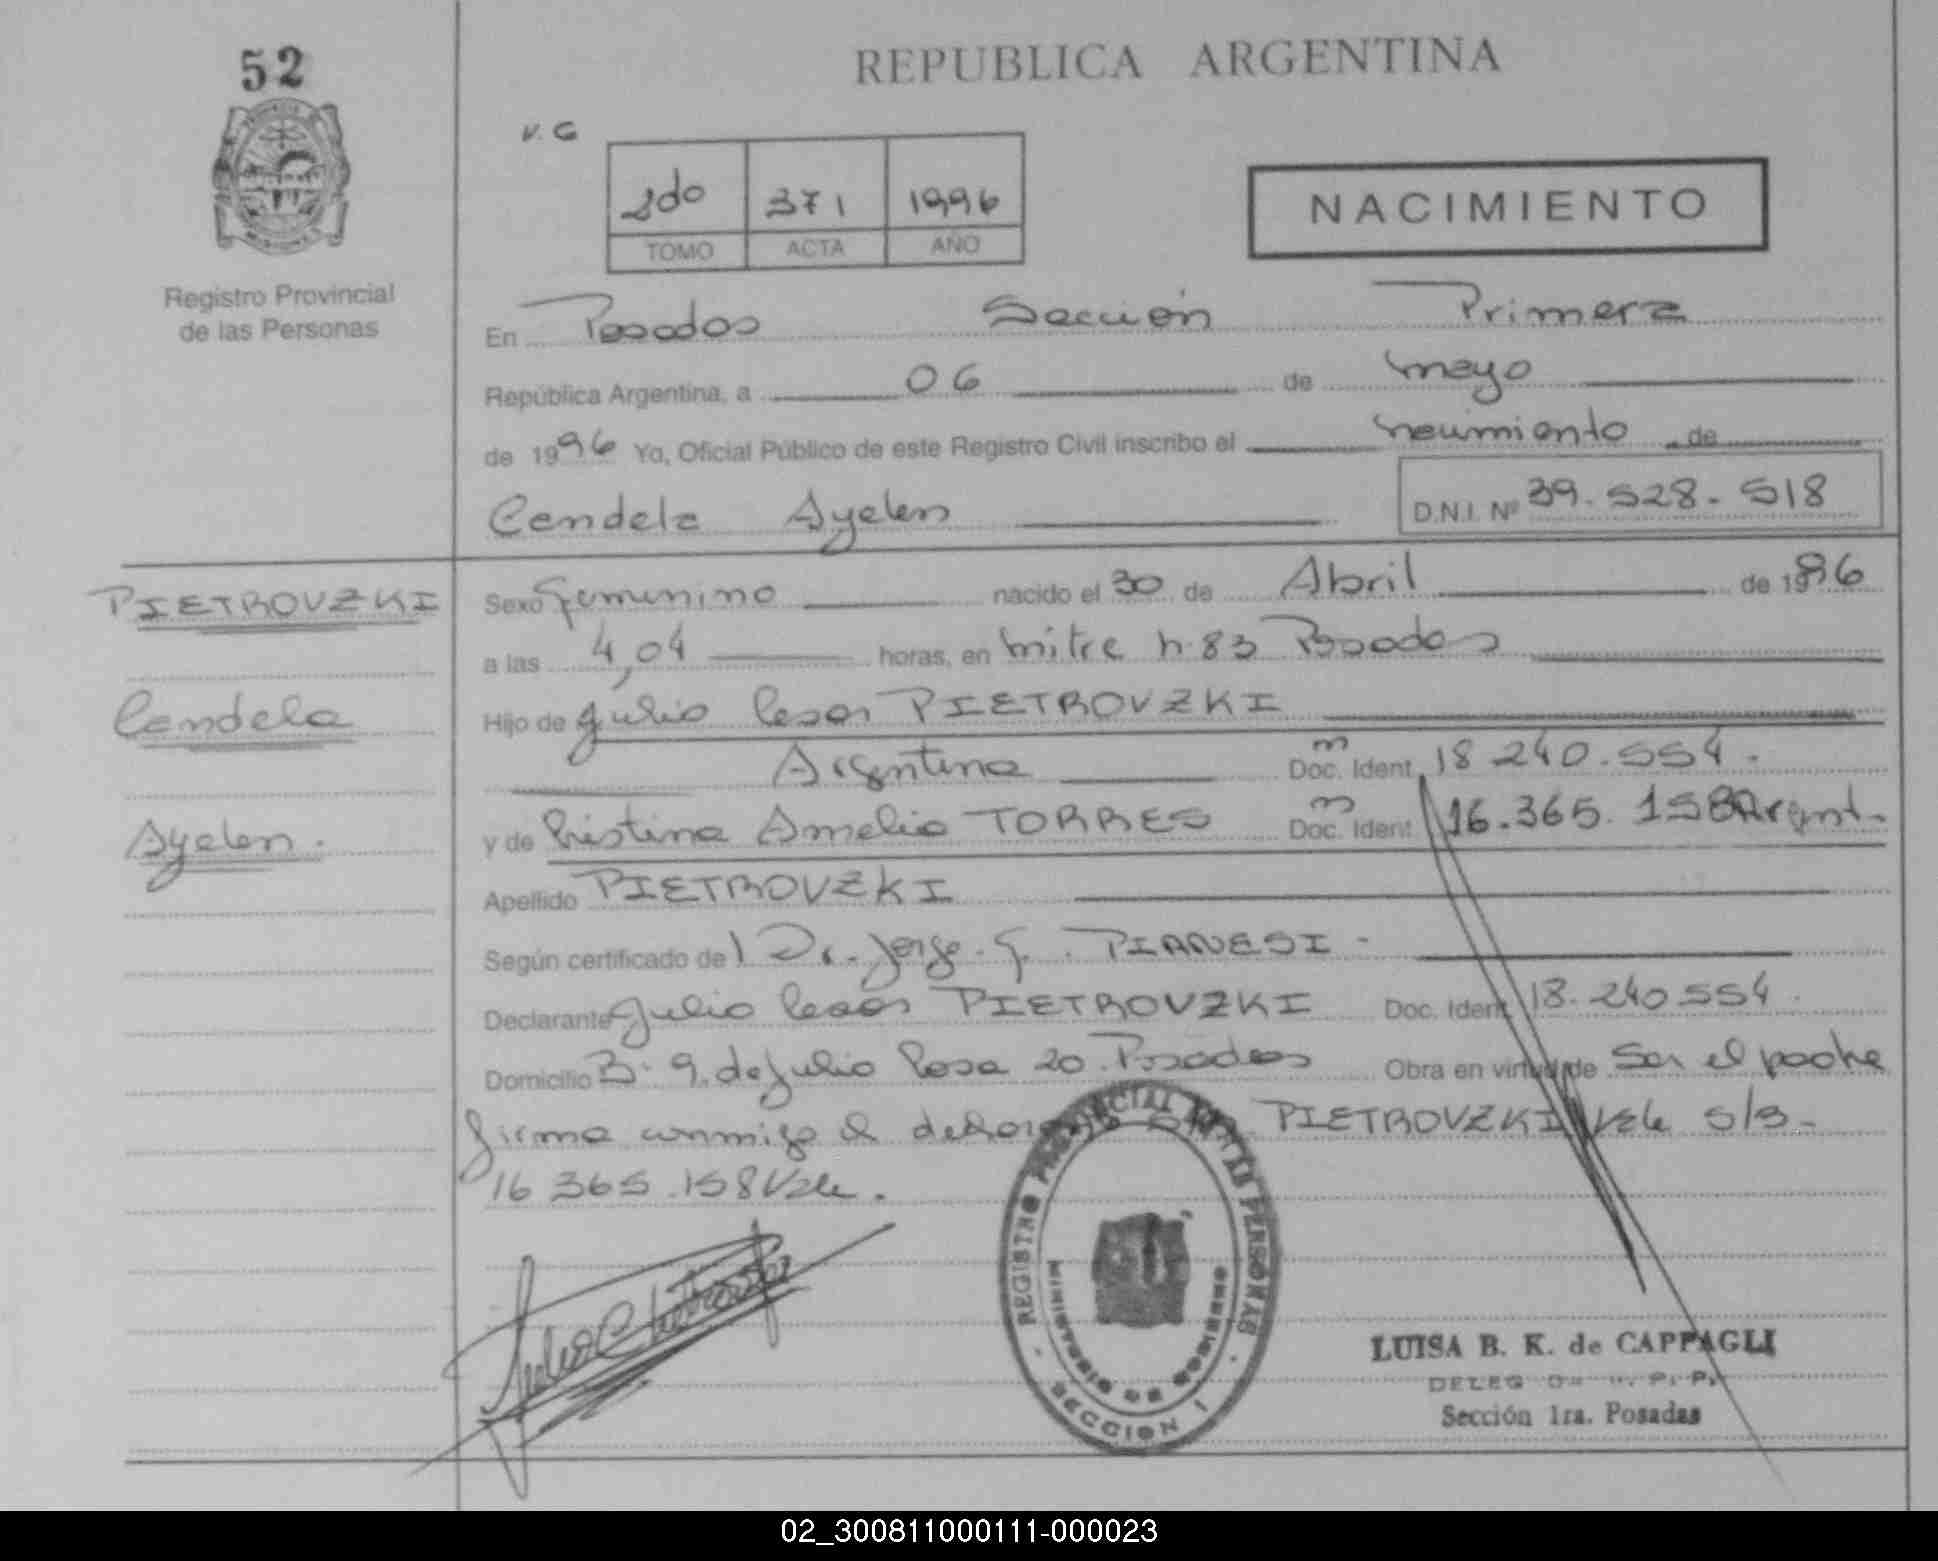 52
REPUBLICA ARGENTINA
V. G
2do 371 1996
TOMO ACTA AÑO
NACIMIENTO
Registro Provincial
de las Personas
En Posadas Sección Primera
República Argentina, a 06 de mayo
de 1996 Yo, Oficial Público de este Registro Civil inscribo el nacimiento de
Candela Ayelen D.N.I. Nº 39.528.518
PIETROVZKI
Candela
Ayelen.
Sexo Femenino nacido el 30 de Abril de 1996
a las 4,04 horas, en mitre n. 83 Posadas
Hijo de Julio Cesar PIETROVZKI
Argentina Doc. Ident. m 18 240.554.
y de Cristina Amelia TORRES Doc. Ident. m 16.365.158 Argent.
Apellido PIETROVZKI
Según certificado del Dr. Jorge. G. PIANESI -
Declarante Julio Cesar PIETROVZKI Doc. Ident. 18.240554.
Domicilio B: 9 de Julio Casa 20. Posadas Obra en virtud de Ser el padre
firma conmigo el PIETROVZKI Vale S/B-
16 365.158 Vale.
REGISTRO PROVINCIAL DE LAS PERSONAS
MINISTERIO DE GOBIERNO
- SECCION 1 -
LUISA B. K. de CAPPAGLI
Sección 1ra. Posadas
02_300811000111-000023